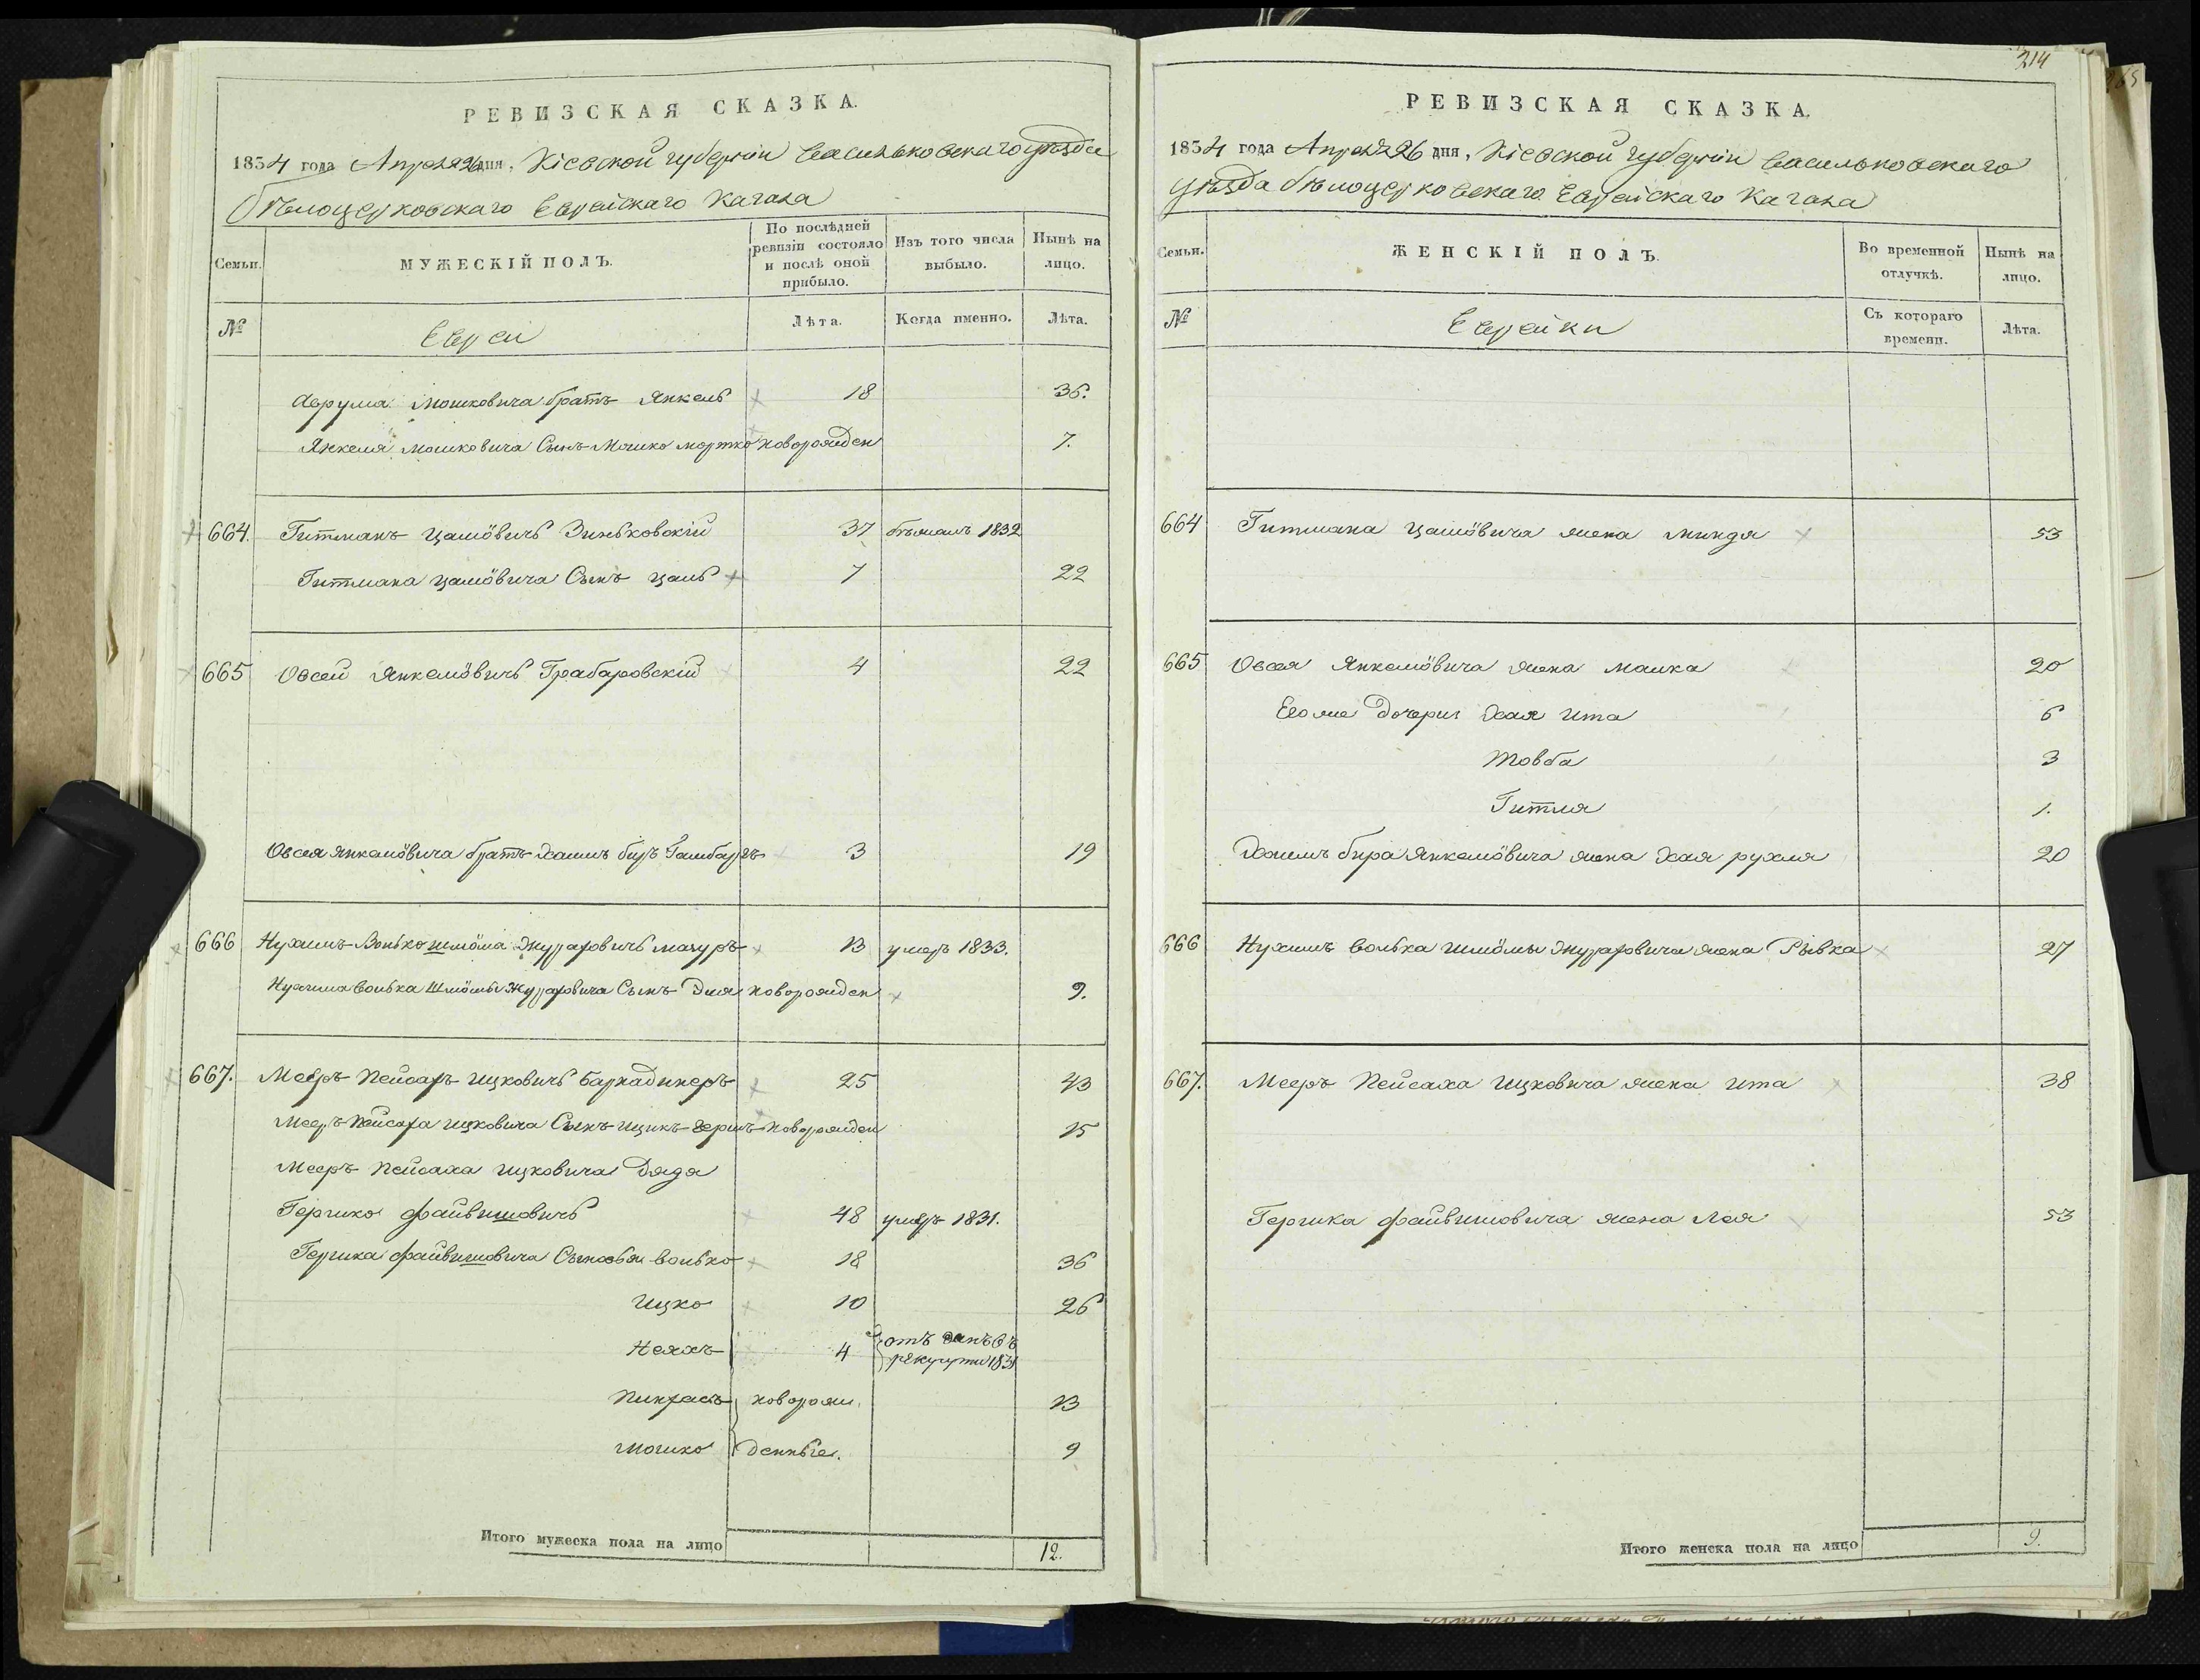 РЕВИЗСКАЯ СКАЗКА.
1834 года Апреля 26 дня, Кіевской губерніи Васильковскаго уѣзда
Бѣлоцерковскаго Еврейскаго Кагала
Семьи.
МУЖЕСКІЙ ПОЛЪ.
По послѣдней ревизіи состояло и послѣ оной прибыло.
Изъ того числа выбыло.
Нынѣ на лицо.
№
Евреи
Лѣта.
Когда именно.
Лѣта.
Аврума Мошковича братъ Янкель 18 36.
Янкеля Мошковича Сынъ Мошко мортко новорожден 7.
664. Гитманъ Цалёвичъ Зиньковскій 37 бѣжалъ 1832
Гитмана Цалёвича Сынъ Цаль 7 22
665 Овсей Янкелёвичъ Грабаровскій 4 22
Овсея Янкелёвича братъ Хаимъ биръ 3 19
666 Нухимъ Волько шлёма Журафовичъ мазуръ 13 умеръ 1833.
Нухима Волька Шлёмы Журафовича Сынъ новорожден 9.
667. Мееръ Пейсахъ Ицковичъ Барнадинеръ 25 43
Мееръ Пейсаха Ицковича Сынъ Ицикъ Гершъ новорожден 15
Мееръ Пейсаха Ицковича Дядя
Гершко Файвишовичъ 48 умеръ 1831.
Гершка Файвишовича Сыновья Волько 18 36
Ицко 10 26
4 отъ данъ въ
рекруты 1831
Пинхасъ новорож. 13
Мошко денные. 9
Итого мужеска пола на лицо 12.
214
РЕВИЗСКАЯ СКАЗКА.
1834 года Апреля 26 дня, Кіевской губерніи Васильковскаго
уѣзда бѣлоцерковскаго Еврейскаго Кагала
Семьи.
ЖЕНСКІЙ ПОЛЪ.
Во временной отлучкѣ.
Нынѣ на лицо.
№
Еврейки
Съ котораго времени.
Лѣта.
664 Гитмана Цалёвича жена Миндя 53
665 Овсея Янкелёвича жена Малка 20
Его же Дочери Хая Ита 6
Товба 3
Гитля 1.
Хаимъ бира Янкелёвича жена Хая рухля 20
666 Нухимъ Волька Шлёмы Журафовича жена Рывка 27
667. Мееръ Пейсаха Ицковича жена Ита 38
Гершка Файвишовича жена Лея 53
Итого женска пола на лицо 9.